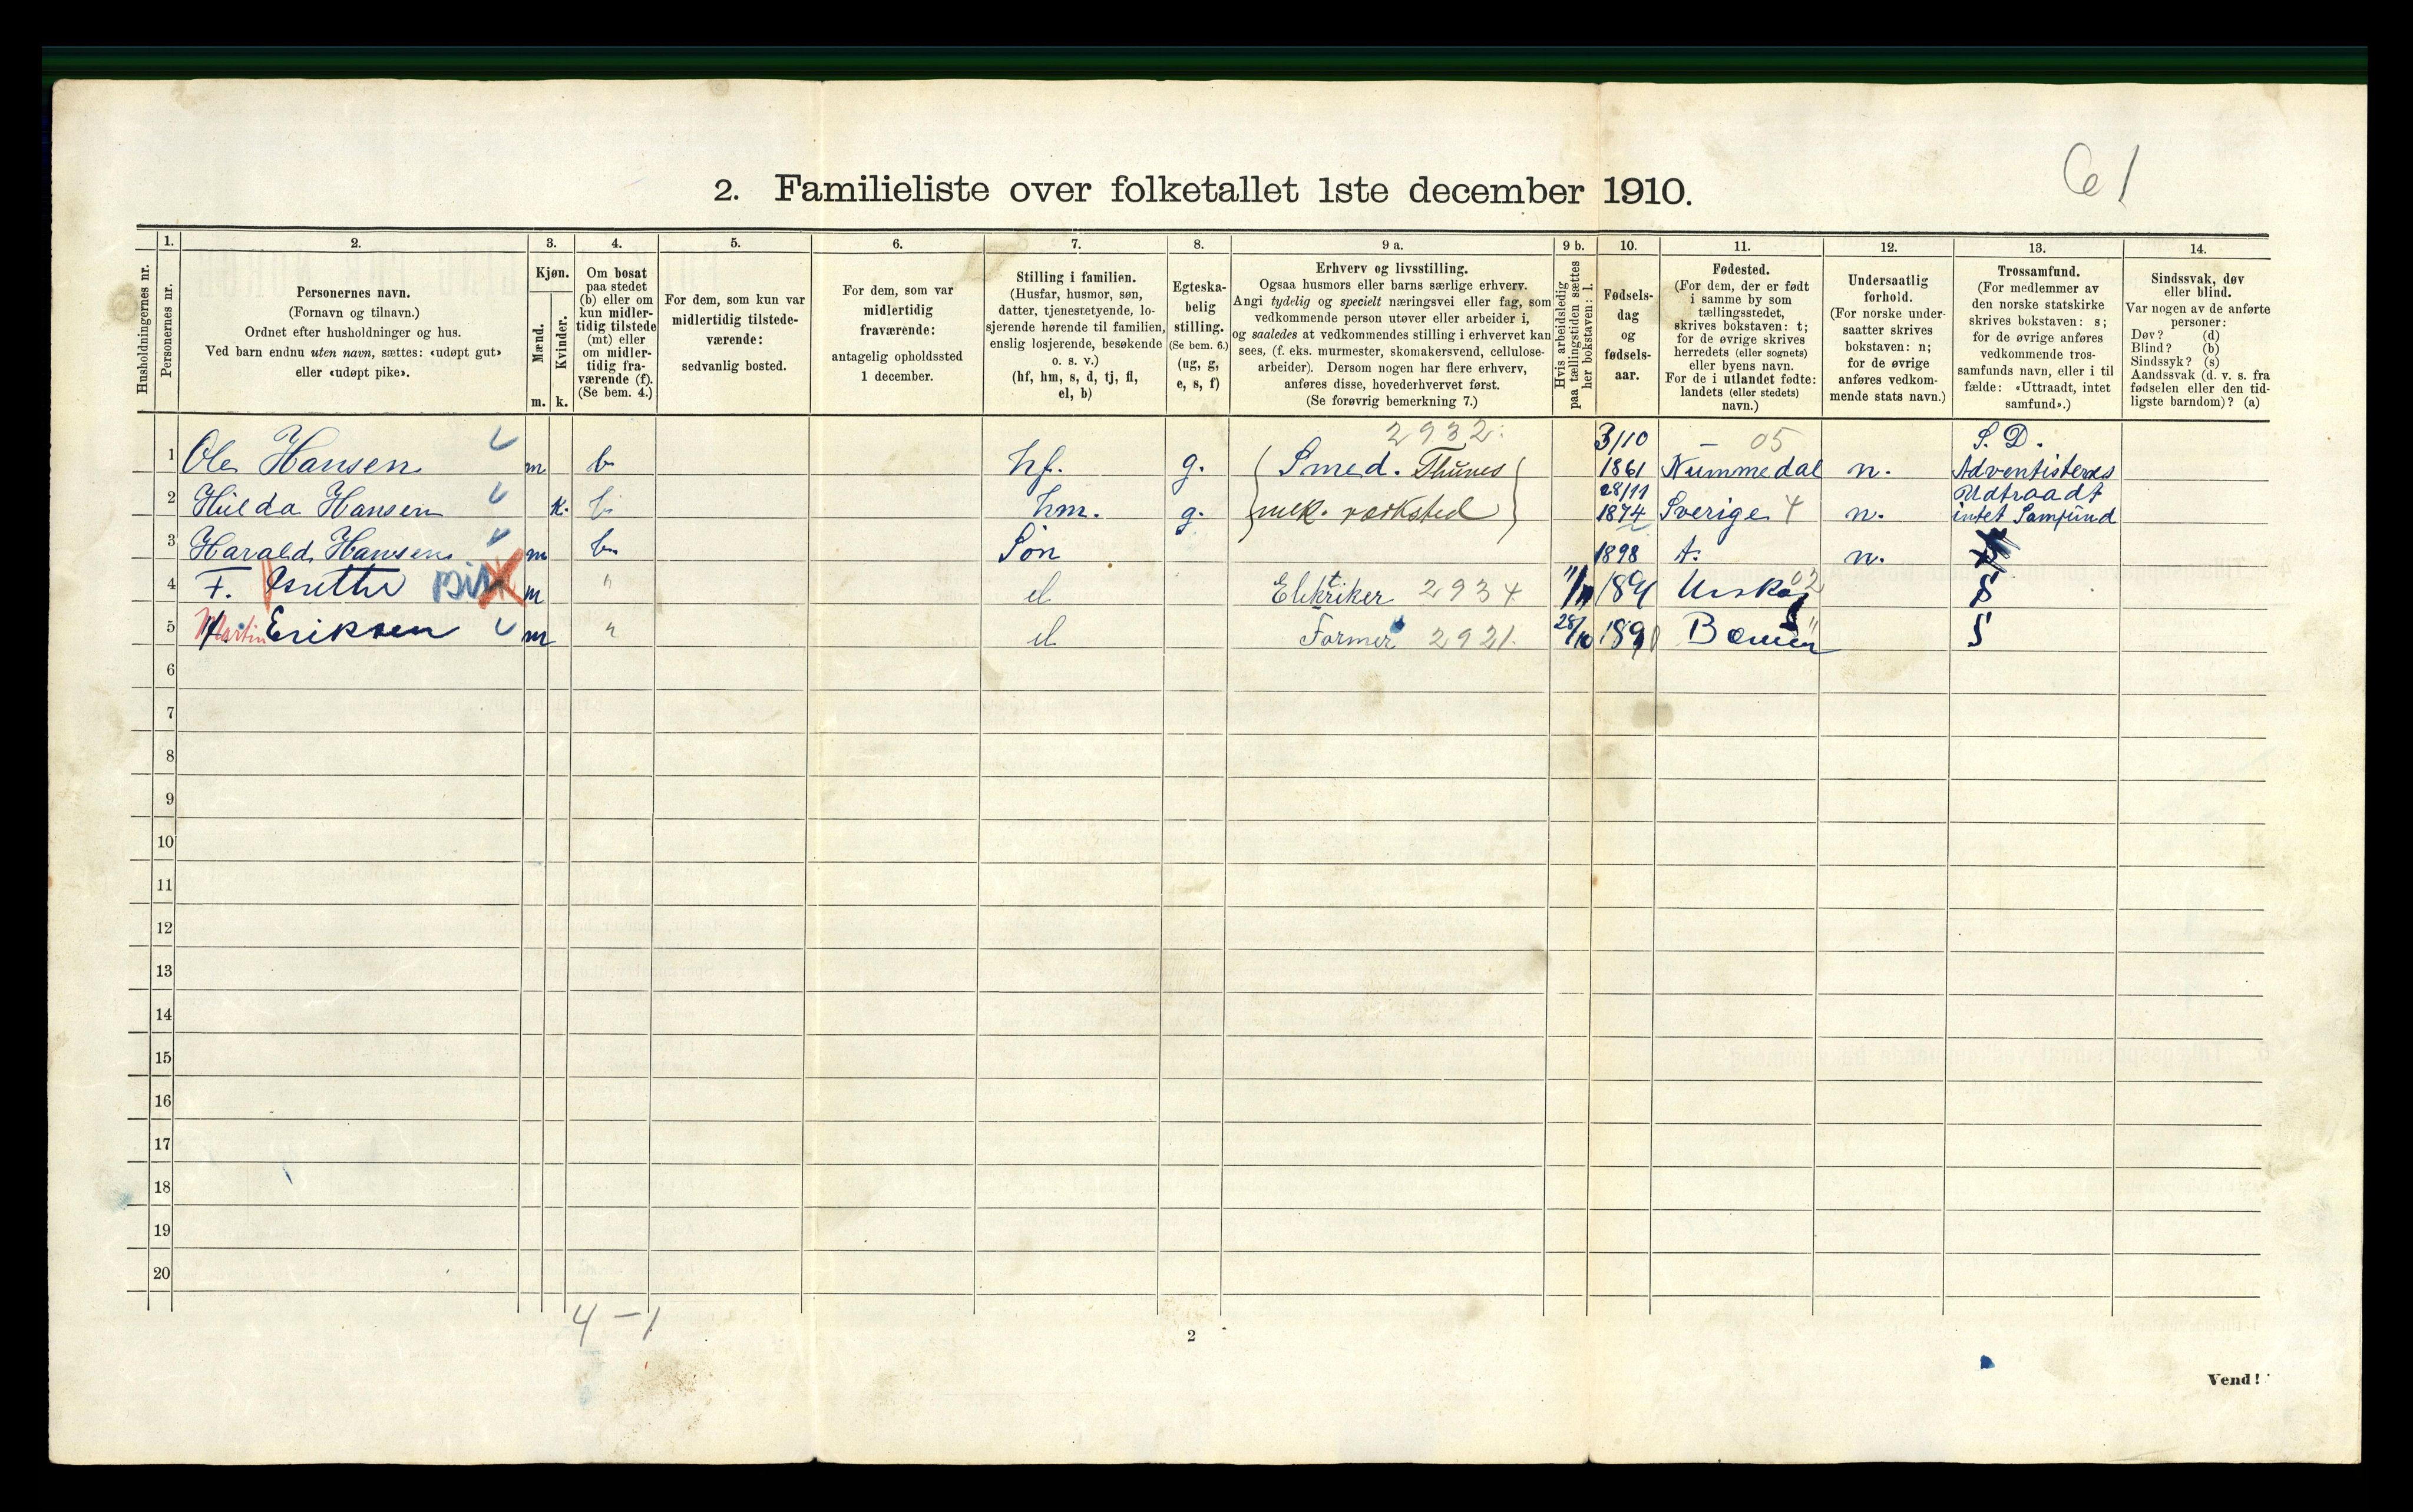 61
2. Familieliste over folketallet 1ste december 1910.
Husholdningernes nr.
1. Personernes nr.
2. Personernes navn.
(Fornavn og tilnavn.)
Ordnet efter husholdninger og hus.
Ved barn endnu uten navn, sættes: «udøpt gut»
eller «udøpt pike».
3. Kjøn.
Mænd. m.
Kvinder. k.
4. Om bosat
paa stedet
(b) eller om
kun midler-
tidig tilstede
(mt) eller
om midler-
tidig fra-
værende (f).
(Se bem. 4.)
5. For dem, som kun var
midlertidig tilstede-
værende:
sedvanlig bosted.
6. For dem, som var
midlertidig
fraværende:
antagelig opholdssted
1 december.
7. Stilling i familien.
(Husfar, husmor, søn,
datter, tjenestetyende, lo-
sjerende hørende til familien,
enslig losjerende, besøkende
o. s. v.)
(hf, hm, s, d, tj, fl,
el, b)
8. Egteska-
belig
stilling.
(Se bem. 6.)
(ug, g,
e, s, f)
9 a. Erhverv og livsstilling.
Ogsaa husmors eller barns særlige erhverv.
Angi tydelig og specielt næringsvei eller fag, som
vedkommende person utøver eller arbeider i,
og saaledes at vedkommendes stilling i erhvervet kan
sees, (f. eks. murmester, skomakersvend, cellulose-
arbeider). Dersom nogen har flere erhverv,
anføres disse, hovederhvervet først.
(Se forøvrig bemerkning 7.)
9 b. Hvis arbeidsledig
paa tællingstiden sættes
her bokstaven: l.
10. Fødsels-
dag
og
fødsels-
aar.
11. Fødested.
(For dem, der er født
i samme by som
tællingsstedet,
skrives bokstaven: t;
for de øvrige skrives
herredets (eller sognets)
eller byens navn.
For de i utlandet fødte:
landets (eller stedets)
navn.)
12. Undersaatlig
forhold.
(For norske under-
saatter skrives
bokstaven: n;
for de øvrige
anføres vedkom-
mende stats navn.)
13. Trossamfund.
(For medlemmer av
den norske statskirke
skrives bokstaven: s;
for de øvrige anføres
vedkommende tros-
samfunds navn, eller i til
fælde: «Uttraadt, intet
samfund».)
14. Sindssvak, døv
eller blind.
Var nogen av de anførte
personer:
Døv? (d)
Blind? (b)
Sindssyk? (s)
Aandssvak (d. v. s. fra
fødselen eller den tid-
ligste barndom)? (a)
1 Ole Hansen m b. hf. g. Smed. Thunes 2932. 3/10 1861 Nummedal 05 n. S. D. Adventisternes
2 Hulda Hansen k. b. hm. g. mek. værksted 28/11 1874 Sverige 4 n. Udtraadt intet Samfund
3 Harald Hansen m b. Søn 1898 t. n.
4 F. m " el Elektriker 2934 Urskog 02 S
5 Martin Eriksen m " el Former 2921. 28/10 1890 S
6
7
8
9
10
11
12
13
14
15
16
17
18
19
20
4 - 1
2
Vend!